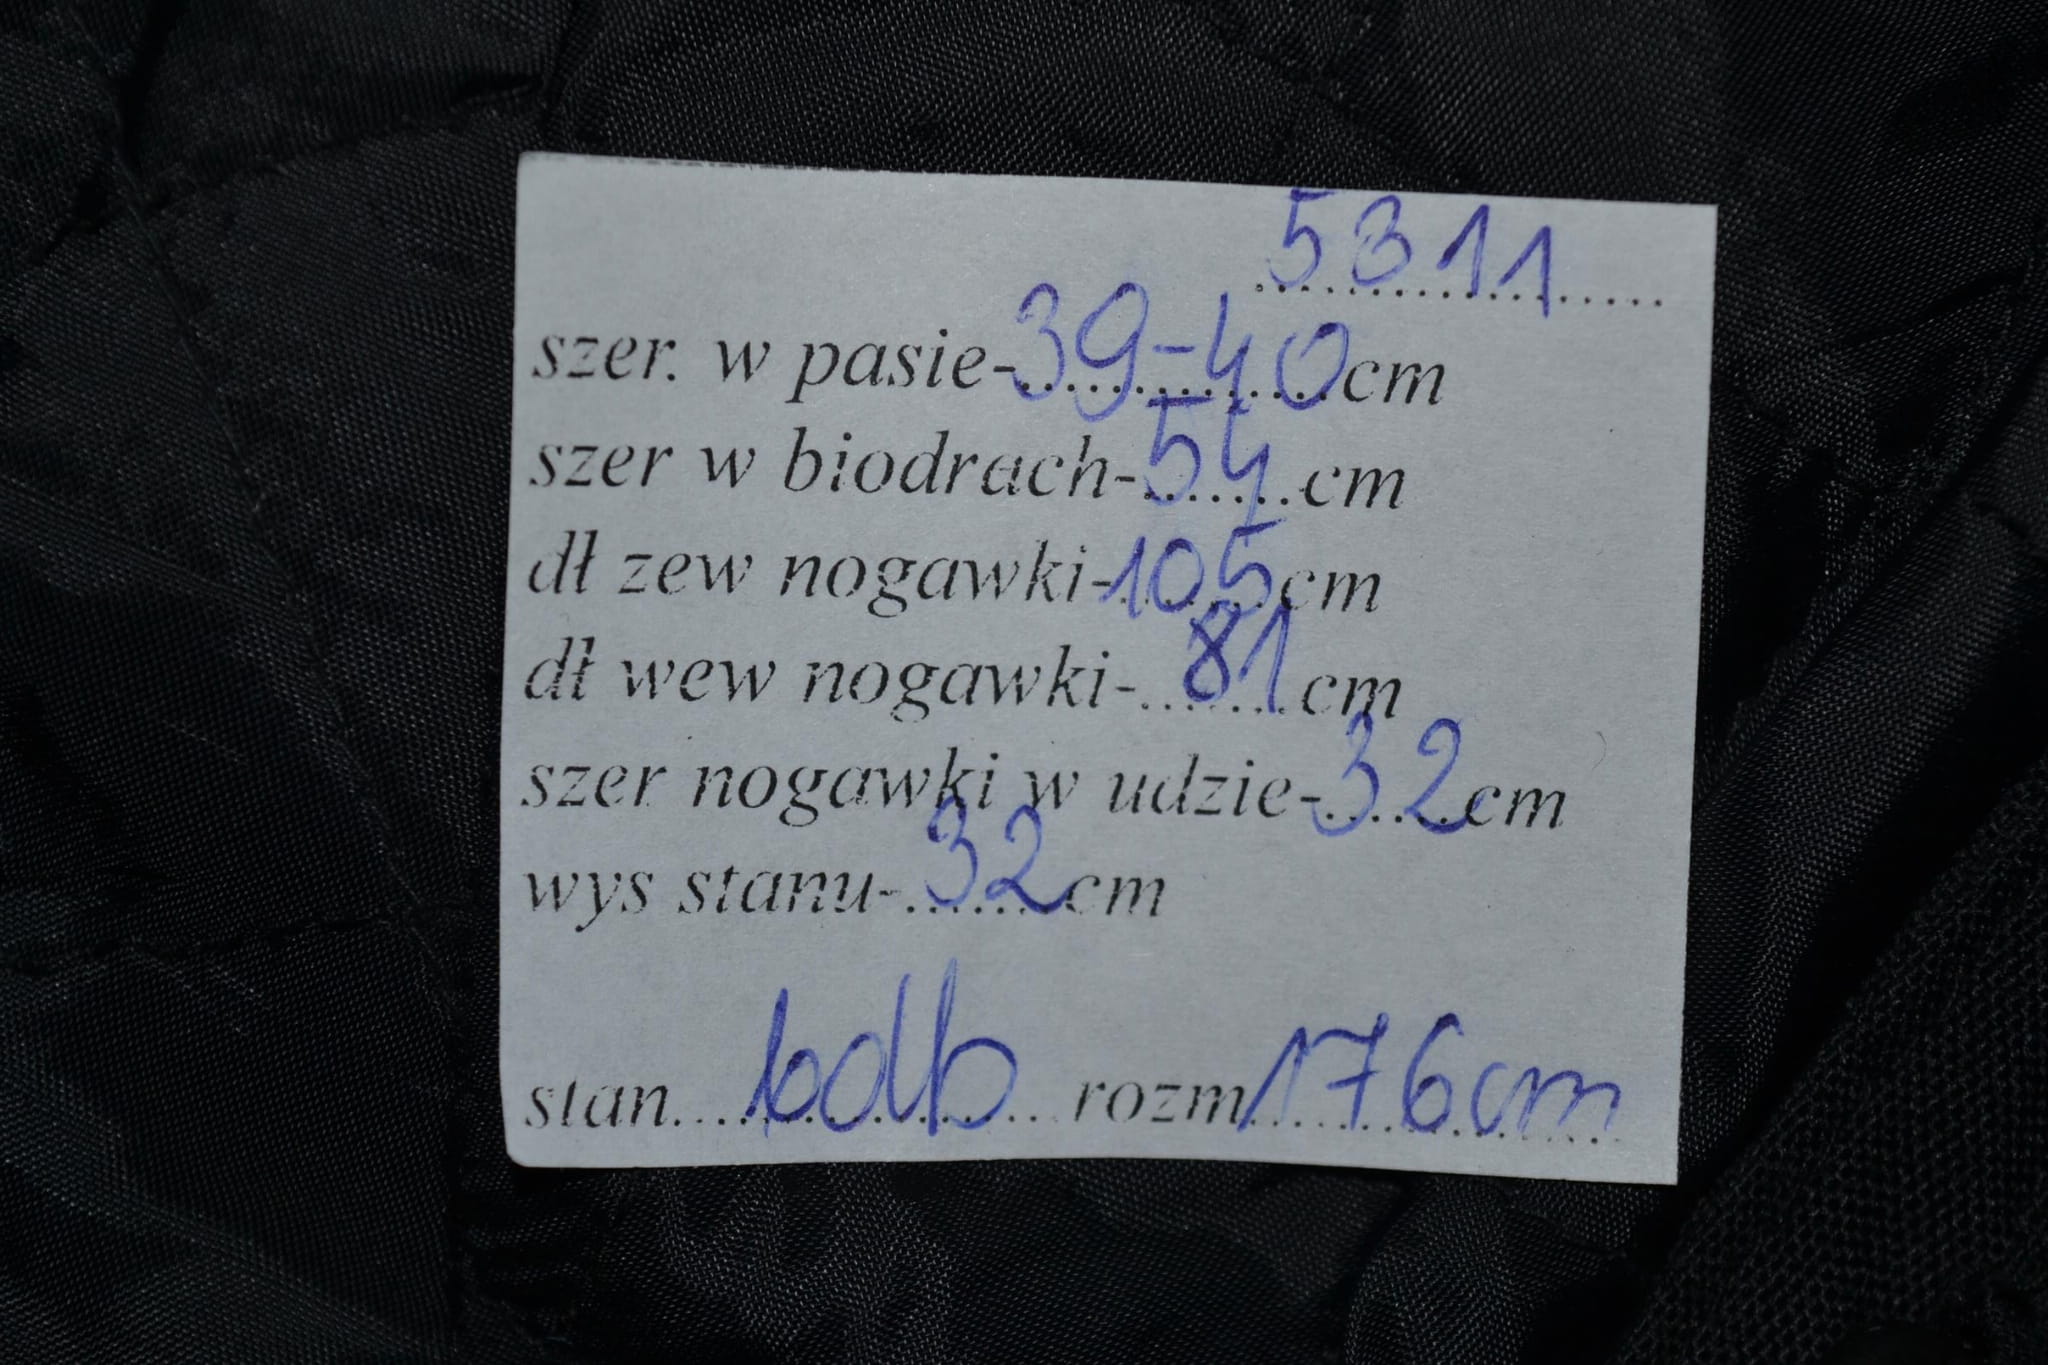 5311
szer. w pasie-39-40cm
szer w biodrach-54cm
dł zew nogawki-105cm
dł wew nogawki-81cm
szer nogawki w udzie-32cm
wys stanu-32cm
stan bdb rozm 176cm